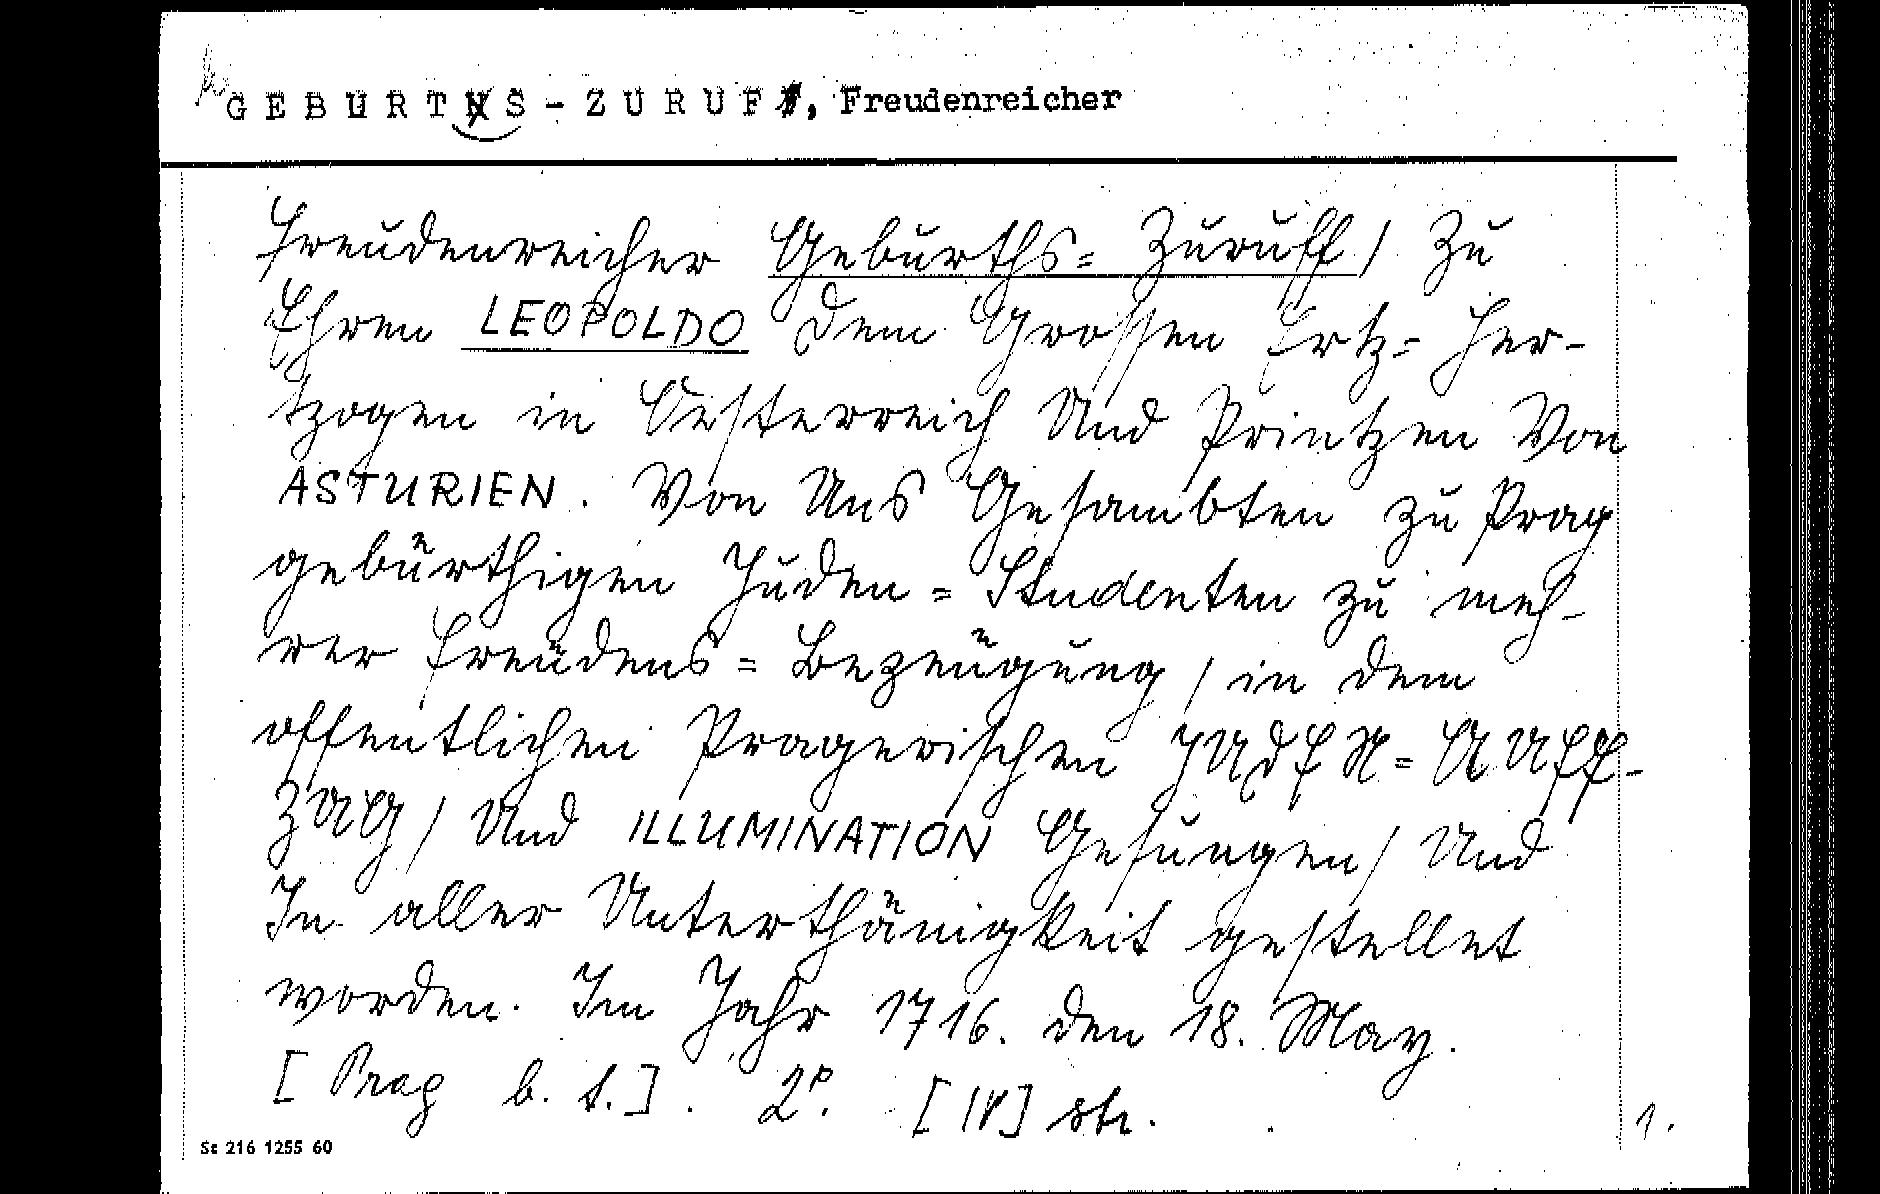 GEBURTHS-ZURUFF, Freudenreicher
Freudenreicher Geburths= Zuruff / Zu
Ehren LEOPOLDO dem Grossen Ertz= Her-
tzogen in Oesterreich Und Printzen Von
ASTURIEN. Von Uns Gesambten zu Prag
gebürthigen Juden = Studenten zu meh-
rer Freüdens = Bezeügung / in dem
offentlichen Pragerischen JUdEN = AUFF-
ZUG / Und ILLUMINATION Gesungen / Und
In aller Unterthänigkeit gestellet
worden. Im Jahr 1716. den 18. May.
[Prag b. t.]. 2°. [IV] str.
1.
Sc 216 1255 60